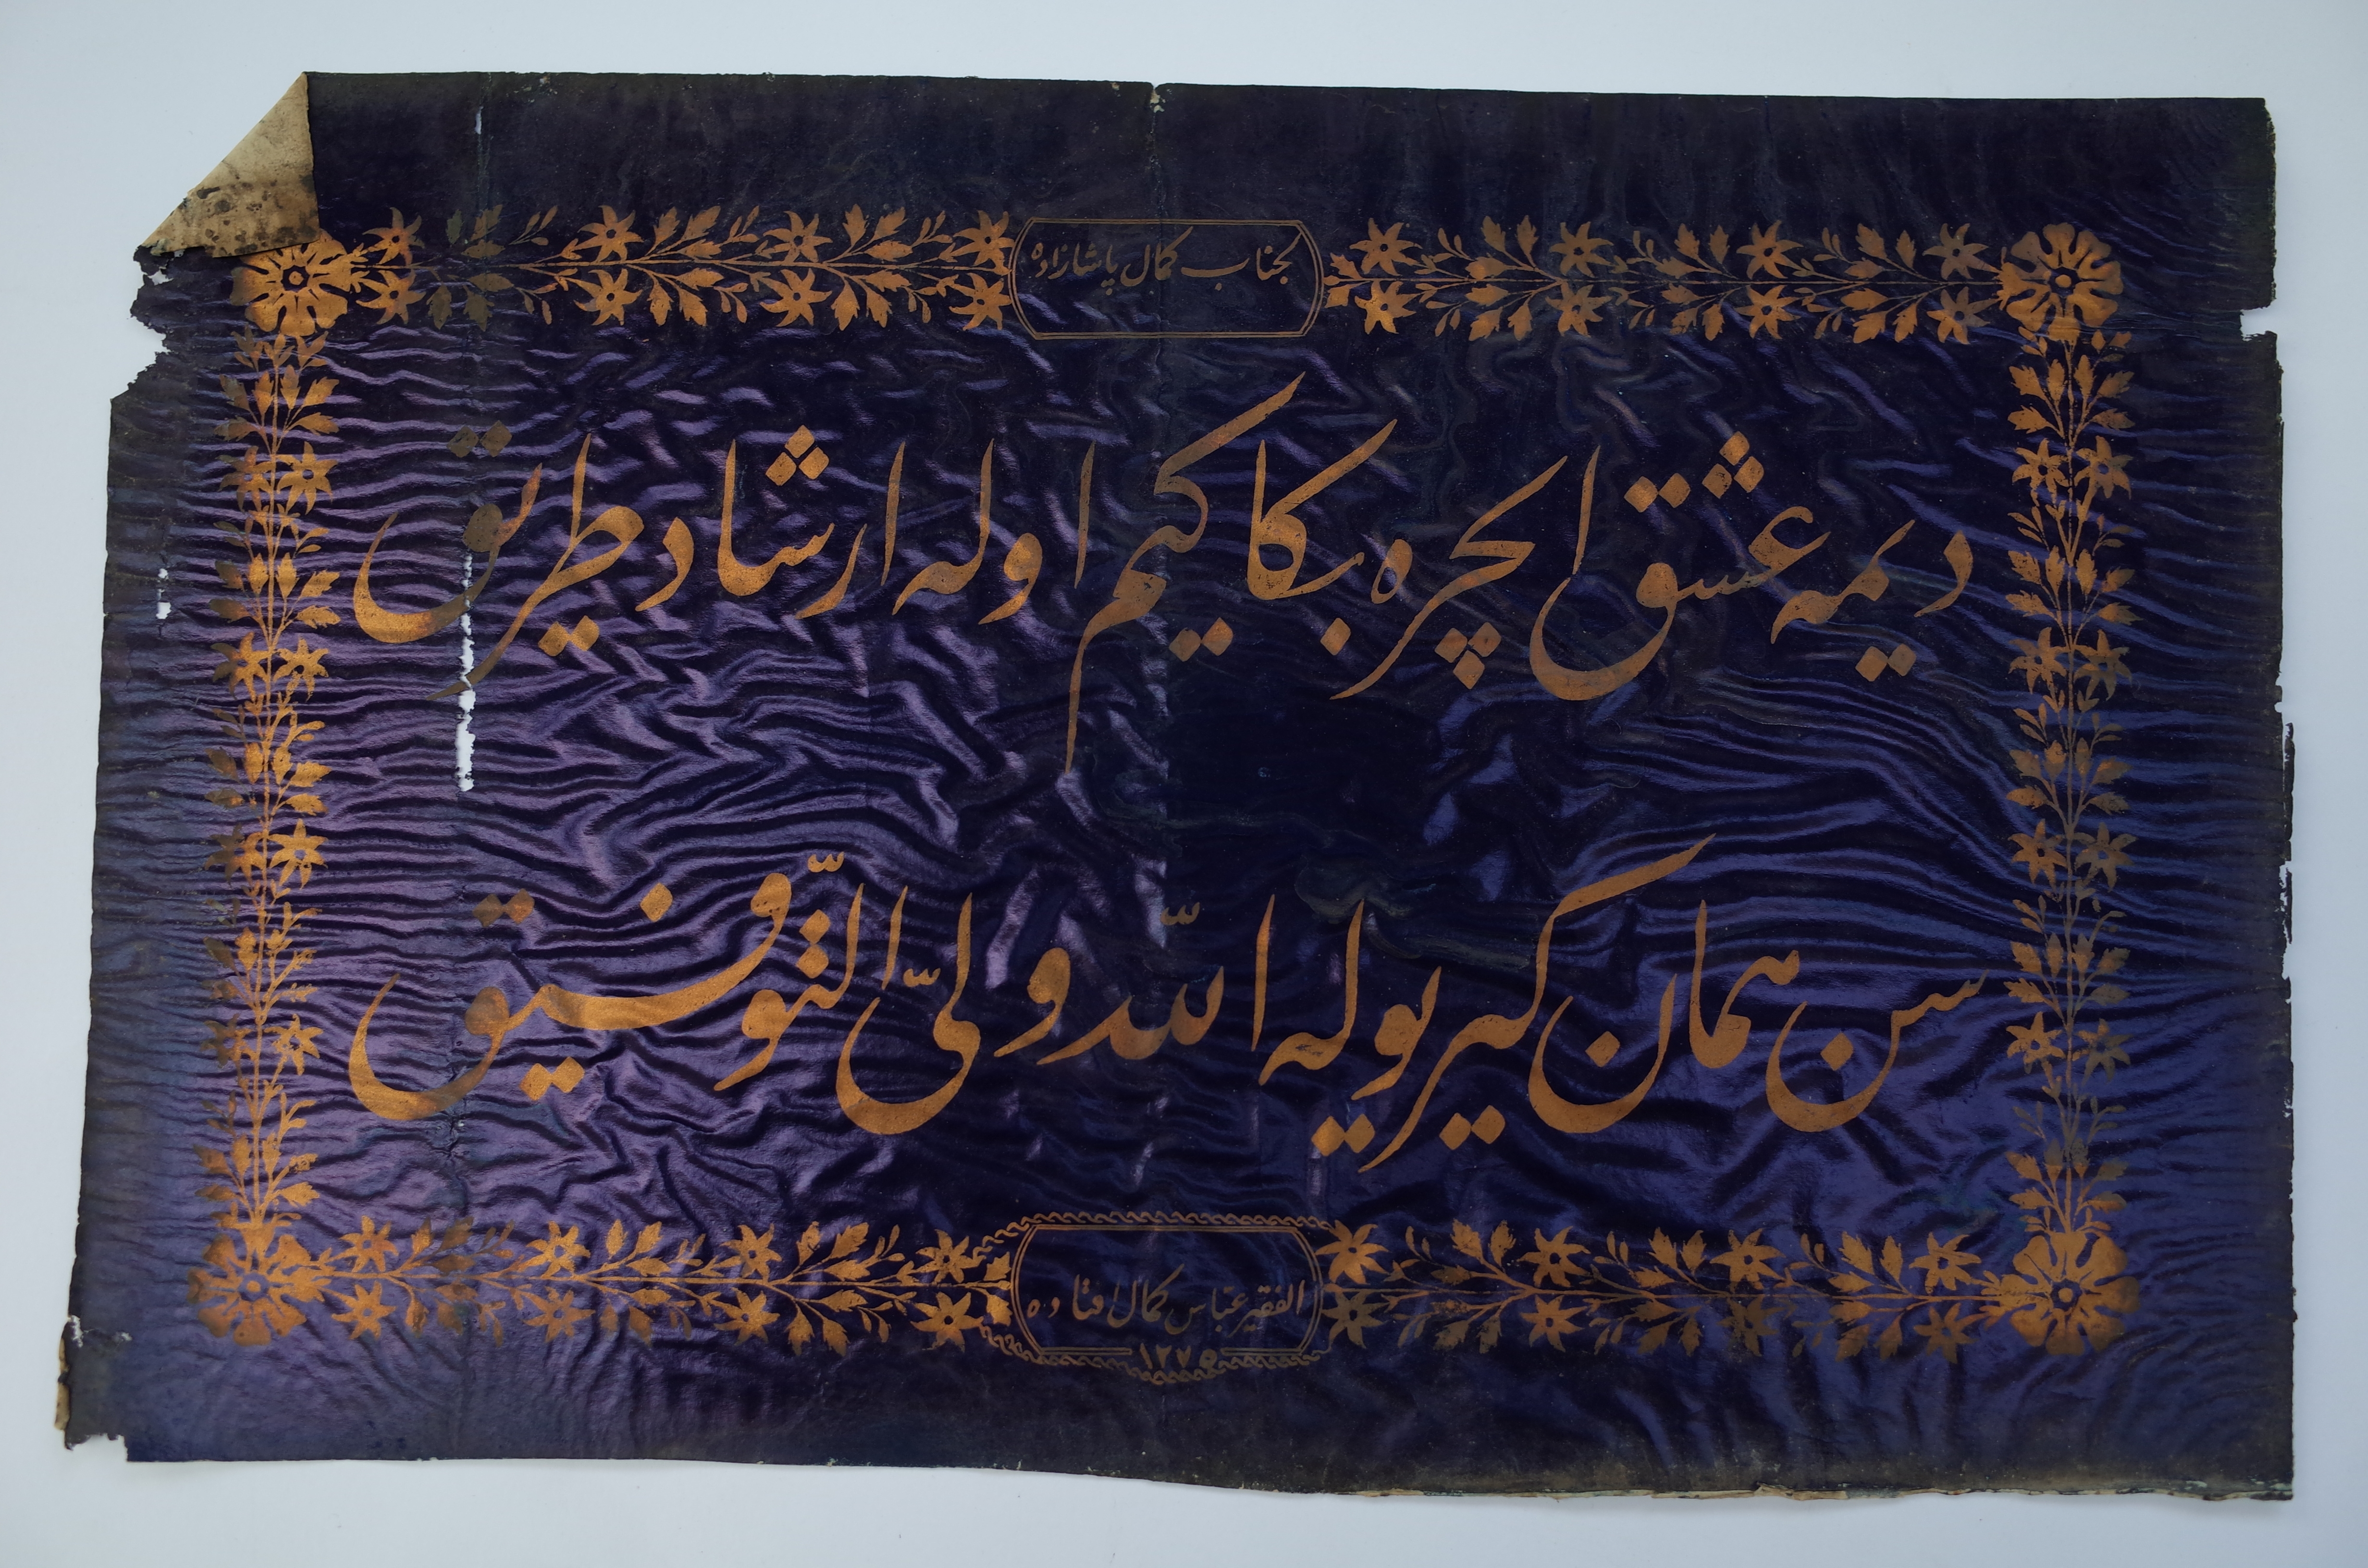 جناب کمال پاشازاده
دیمه عشق ایچره بکا کیم اوله ارشاد طریق
سن همان کیر یوله اللّه ولیّ التّوفیق
الفقیر عباس کمال افتاده
١٢٧٥